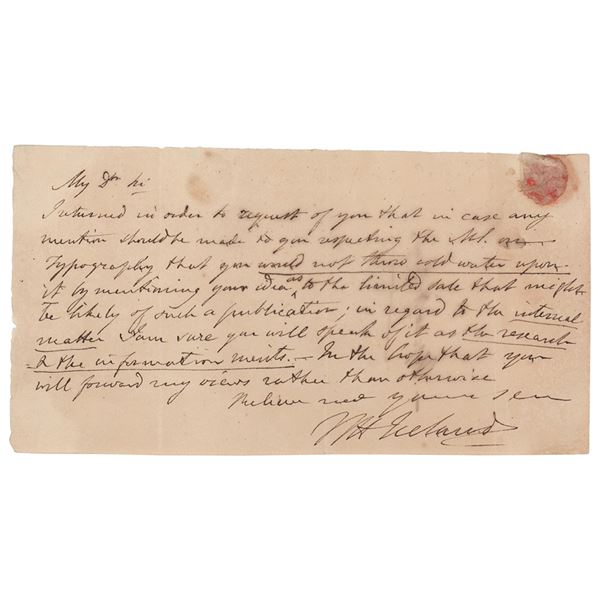 My Dr Sir
I returned in order to request of you that in case any
mention should be made to you respecting the MS. on
Typography that you would not throw cold water upon
it by mentioning your idea as to the limited sale that might
be likely of such a publication; in regard to the internal
matter I am sure you will speak of it as the research
& the information merits. – In the hope that you
will forward my views rather than otherwise
Believe me yours sin
WH Ireland